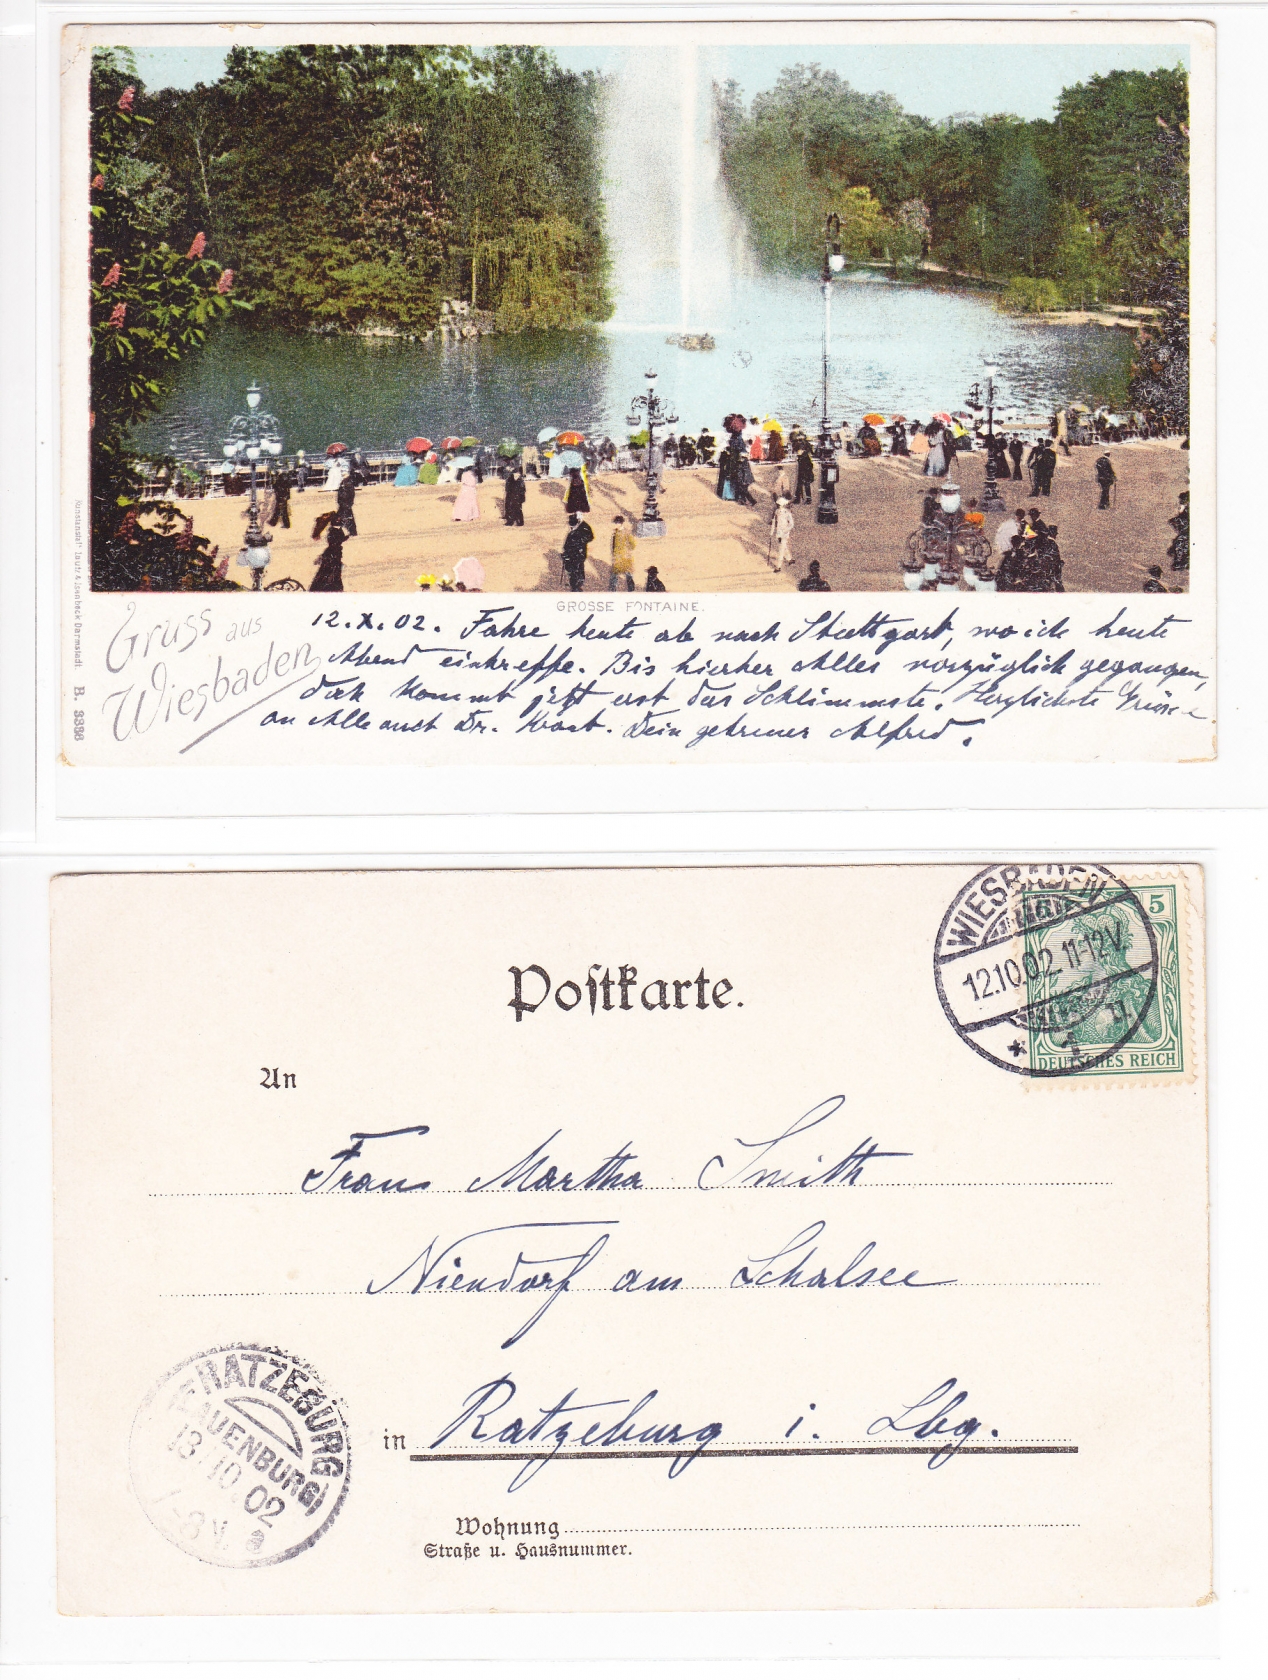 GROSSE FONTAINE.
Gruss aus
Wiesbaden
12.X.02. Fahre heute ab nach Stuttgart, wo ich heute
Abend eintreffe. Bis hierher Alles vorzüglich gegangen,
doch kommt jetzt erst das Schlimmste. Herzlichste Grüsse
an Alle auch Dr. Dein getreuer Alfred.
Kunstanstalt Lautz & Isenbeck Darmstadt.
B. 3338
Postkarte.
WIESBADEN
12.10.02 11-12V.
* 1 u.
5
DEUTSCHES REICH
An
Frau Martha Smith
Niendorf am Schalsee
in Ratzeburg i. Lbg.
Wohnung
Straße u. Hausnummer.
RATZEBURG
LAUENBURG)
13.10.02
-8V. a